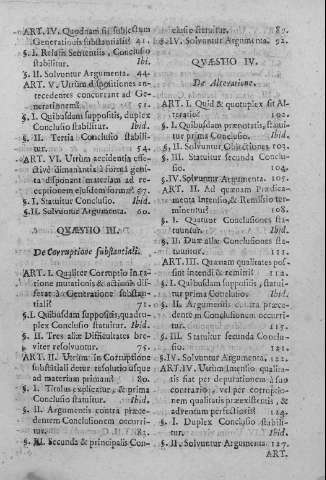 ART. IV. Quodnam sit subjectum
Generationis substantialis? 41.
§. I. Relatis Sententiis, Conclusio
stabilitur. Ibi.
§. II. Solvuntur Argumenta. 44.
ART. V. Utrùm dispositiones an-
tecedentes concurrant ad Ge-
nerationem? 51.
§. I. Quibusdam suppositis, duplex
Conclusio stabilitur. Ibid.
§. II. Tertia Conclusio stabili-
tur. 54.
ART. VI. Utrùm accidentia effe-
ctivè dimanantia à forma geni-
ta disponant materiam ad re-
ceptionem ejusdem formæ? 57.
§. I. Statuitur Conclusio. Ibid.
§. II. Solvuntur Argumenta. 60.
QUÆSTIO III.
De Corruptione substantiali.
ART. I. Qualiter Corruptio in ra-
tione mutationis & actionis dif-
ferat à Generatione substan-
tiali? 71.
§. I. Quibusdam suppositis, quadru-
plex Conclusio statuitur. Ibid.
§. II. Tres aliæ Difficultates bre-
viter resolvuntur. 75.
ART. II. Utrùm in Corruptione
substantiali detur resolutio usque
ad materiam primam? 80.
§. I. Titulus explicatur, & prima
Conclusio statuitur. Ibid.
§. II. Argumentis contra præce-
dentem Conclusionem occurri-
tur. 83.
§. III. Secunda & principalis Con-
clusio statuitur. 89.
§. IV. Solvuntur Argumenta. 92.
QUÆSTIO IV.
De Alteratione.
ART. I. Quid & quotuplex sit Al-
teratio? 102.
§. I. Quibusdam prænotatis, statui-
tur prima Conclusio. Ibid.
§. II. Solvuntur Objectiones. 103.
§. III. Statuitur secunda Conclu-
sio. 104.
§. IV. Solvuntur Argumenta. 105.
ART. II. Ad quænam Prædica-
menta Intensio, & Remissio ter-
minentur? 108.
§. I. Quatuor Conclusiones sta-
tuuntur. Ibid.
§. II. Duæ aliæ Conclusiones sta-
tuuntur. 111.
ART. III. Quænam qualitates pos-
sint intendi & remitti? 112.
§. I. Quibusdam suppositis, statui-
tur prima Conclusio. Ibid.
§. II. Argumentis contra præce-
dentem Conclusionem occurri-
tur. 115.
§. III. Statuitur secunda Conclu-
sio. 121.
§. IV. Solvuntur Argumenta. 122.
ART. IV. Utrùm Intensio quali-
tatis fiat per depurationem à suo
contrario, vel per corruptio-
nem qualitatis præexistentis, &
adventum perfectioris? 124.
§. I. Duplex Conclusio stabili-
tur. Ibid.
§. II. Solvuntur Argumenta. 127.
ART.